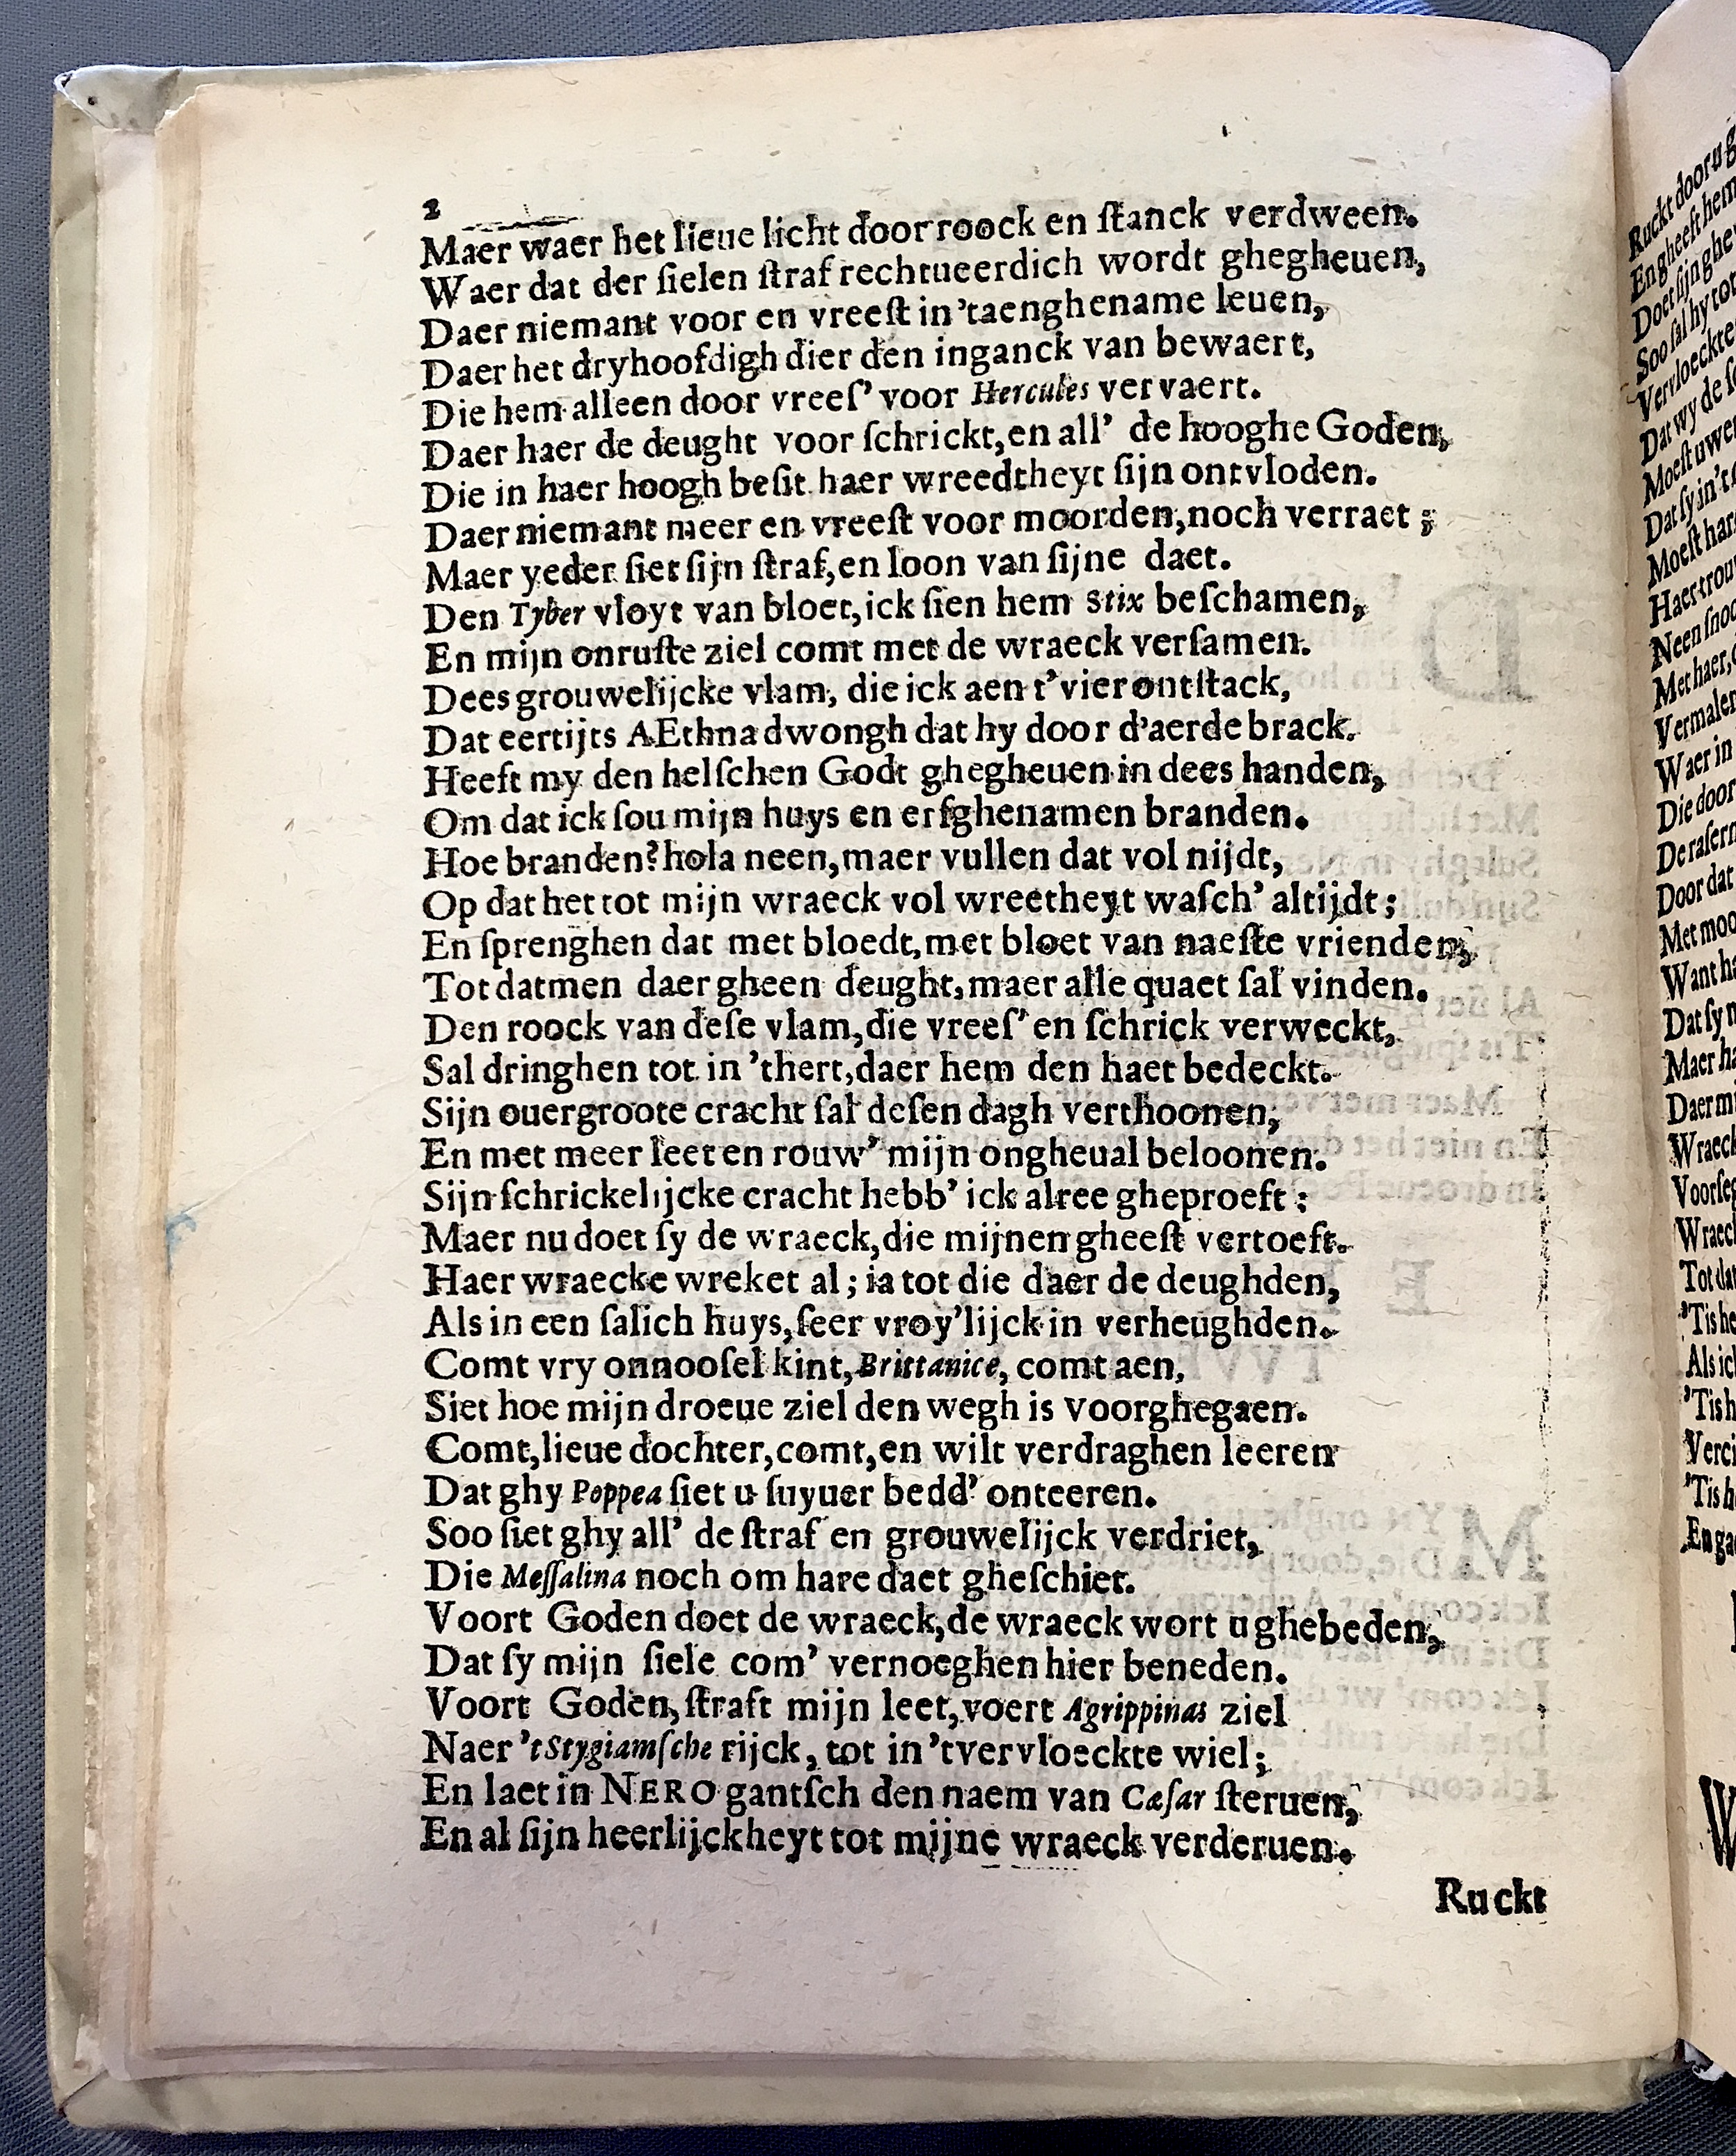 2
Maer waer het lieue licht door roock en ſtanck verdween.
Waer dat der ſielen ſtraf rechtueerdich wordt ghegheuen,
Daer niemant voor en vreeſt in 'taenghename leuen,
Daer het dryhoofdigh dier den inganck van bewaert,
Die hem alleen door vreeſ' voor Hercules vervaert.
Daer haer de deught voor ſchrickt, en all' de hooghe Goden,
Die in haer hoogh beſit haer wreedtheyt ſijn ontvloden.
Daer niemant meer en vreeſt voor moorden, noch verraet ;
Maer yeder ſiet ſijn ſtraf, en loon van ſijne daet.
Den Tyber vloyt van bloet, ick ſien hem Stix beſchamen,
En mijn onruſte ziel comt met de wraeck verſamen.
Dees grouwelijcke vlam, die ick aen t'vier ontſtack,
Dat eertijts AEthna dwongh dat hy door d'aerde brack.
Heeft my den helſchen Godt ghegheuen in dees handen,
Om dat ick ſou mijn huys en erfghenamen branden.
Hoe branden? hola neen, maer vullen dat vol nijdt,
Op dat het tot mijn wraeck vol wreetheyt waſch' altijdt ;
En ſprenghen dat met bloedt, met bloet van naeſte vrienden,
Tot datmen daer gheen deught, maer alle quaet ſal vinden.
Den roock van deſe vlam, die vreeſ' en ſchrick verweckt,
Sal dringhen tot in 'thert, daer hem den haet bedeckt.
Sijn ouergroote cracht ſal deſen dagh verthoonen,
En met meer leet en rouw' mijn ongheual beloonen.
Sijn ſchrickelijcke cracht hebb' ick alree gheproeft :
Maer nu doet ſy de wraeck, die mijnen gheeſt vertoeft.
Haer wraecke wreket al ; ia tot die daer de deughden,
Als in een ſalich huys, ſeer vroy'lijck in verheughden.
Comt vry onnooſel kint, Brittanice, comt aen,
Siet hoe mijn droeue ziel den wegh is voorghegaen.
Comt, lieue dochter, comt, en wilt verdraghen leeren
Dat ghy Poppea ſiet u ſuyuer bedd' onteeren.
Soo ſiet ghy all' de ſtraf en grouwelijck verdriet,
Die Meſſalina noch om hare daet gheſchiet.
Voort Goden doet de wraeck, de wraeck wort u ghebeden,
Dat ſy mijn ſiele com' vernoeghen hier beneden.
Voort Goden, ſtraft mijn leet, voert Agrippinas ziel
Naer 't Stygiamſche rijck, tot in 'tvervloeckte wiel ;
En laet in NERO gantſch den naem van Cæſar ſteruen,
En al ſijn heerlijckheyt tot mijne wraeck verderuen.
Ruckt